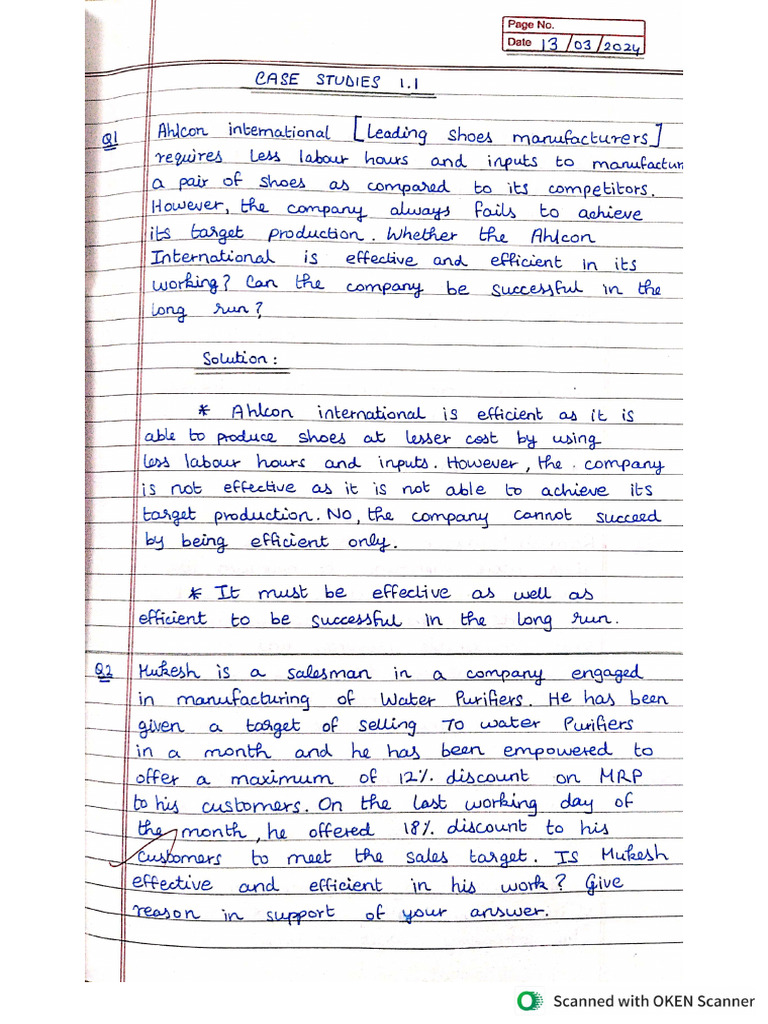 Page No.
Date 13/03/2024
CASE STUDIES 1.1
Q1 Ahlcon international [Leading shoes manufacturers]
requires less labour hours and inputs to manufactur
a pair of shoes as compared to its competitors.
However, the company always fails to achieve
its target production. Whether the Ahlcon
International is effective and efficient in its
working? Can the company be successful in the
long run?
Solution:
* Ahlcon international is efficient as it is
able to produce shoes at lesser cost by using
less labour hours and inputs. However, the . company
is not effective as it is not able to achieve its
target production. No, the company cannot succeed
by being efficient only.
* It must be effective as well as
efficient to be successful in the long run.
Q2 Mukesh is a salesman in a company engaged
in manufacturing of Water Purifiers. He has been
given a target of selling 70 water Purifiers
in a month and he has been empowered to
offer a maximum of 12% discount on MRP
to his customers. On the last working day of
the month, he offered 18% discount to his
customers to meet the sales target. Is Mukesh
effective and efficient in his work? Give
reason in support of your answer.
Scanned with OKEN Scanner